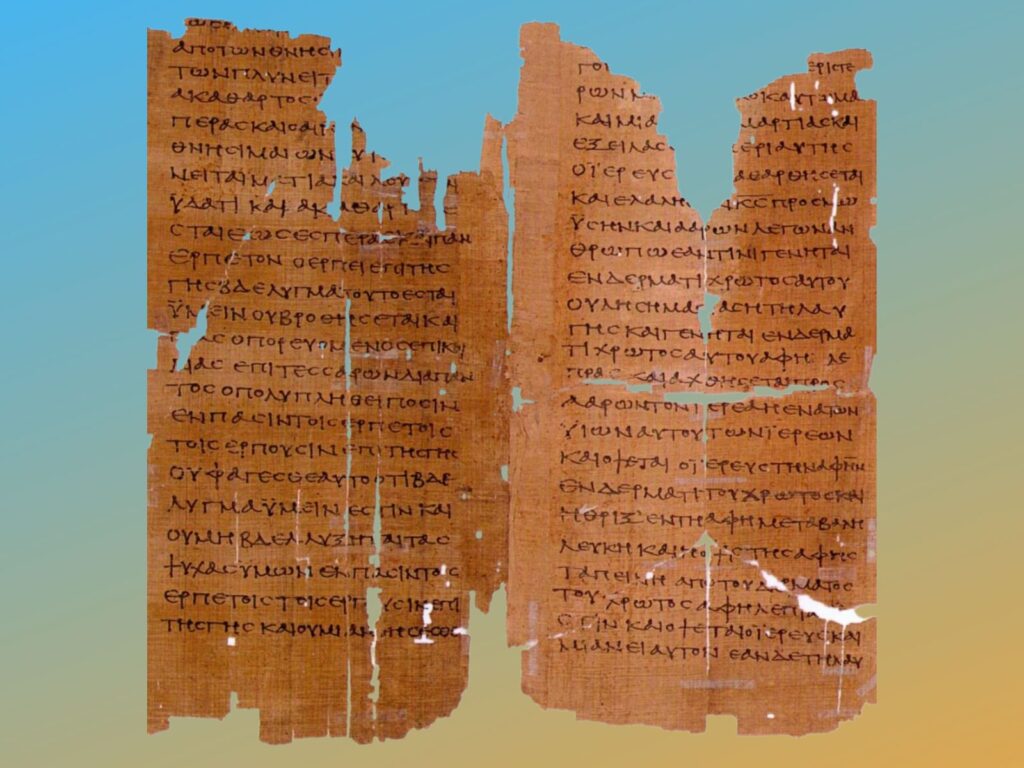 ΑΠΟΤΩΝΘΝΗϹΙ
ΤΩΝΠΛΥΝΕΙΤ
ΑΚΑΘΑΡΤΟϹ
ΠΕΡΑϹΚΑΙΟΑΙΡ
ΘΝΗϹΙΜΑΙΩΝ
ΝΕΙΤΑΙΜΑΤΙΑΚΑΙΛΟΥ
ΫΔΑΤΙ ΚΑΙ ΑΚΑΘΑΡ Ε
ϹΤΑΙΕΩϹΕϹΠΕΡΑϹΚΑΙΠΑΝ
ΕΡΠΕΤΟΝ ΟΕΡΠΕΙΕΠΙΤΗϹ
ΓΗϹΒΔΕΛΥΓΜΑΤΟΥΤΟΕϹΤΑΙ
ΫΜΕΙΝ ΟΥΒΡΩΘΗϹΕΤΑΙΚΑΙ
ΑϹ ΟΠΟΡΕΥΟΜΕΝΟϹΕΠΙΚΟΙ
ΛΙΑϹ ΕΠΙΤΕϹϹΑΡΩΝΔΙΑΠΑΝ
ΤΟϹ ΟΠΟΛΥΠΛΗΘΕΙΠΟϹΙΝ
ΕΝΠΑϹΙΝΤΟΙϹΕΡΠΕΤΟΙϹ
ΤΟΙϹΕΡΠΟΥϹΙΝΕΠΙΤΗϹΓΗϹ
ΟΥΦΑΓΕϹΘΕΑΥΤΟΟΤΙΒΔΕ
ΛΥΓΜΑΫΜΕΙΝΕϹΤΙΝΚΑΙ
ΟΥΜΗΒΔΕΛΥΞΗΤΑΙΤΑϹ
ΨΥΧΑϹΥΜΩΝ ΕΝΠΑϹΙΝΤΟΙϹ
ΕΡΠΕΤΟΙϹΤΟΙϹΕΡΠΟΥϹΙΝΕΠΙ
ΤΗϹΓΗϹ ΚΑΙΟΥΜΙΑΝΘΗϹΕϹΘΕ
ΓΟΙ ΕΡΙϹΤΕ
ΡΩΝΜ ΚΑΙ
ΚΑΙΜΙΑ ΜΑΡΤΙΑϹΚΑΙ
ΕΞΕΙΛΑϹ ΕΡΙΑΥΤΗϹ
ΟΪΕΡΕΥϹ ΑΘΑΡΘΗϹΕΤΑΙ
ΚΑΙΕΛΑΛΗ ΚϹΠΡΟϹΜΩ
ΫϹΗΝΚΑΙΑΑΡΩΝΛΕΓΩΝΑΝ
ΘΡΩΠΩΕΑΝΤΙΝΙΓΕΝΗΤΑΙ
ΕΝΔΕΡΜΑΤΙΧΡΩΤΟϹΑΥΤΟΥ
ΟΥΛΗϹΗΜΑϹΙΑϹΗΤΗΛΑΥ
ΓΗϹΚΑΙΓΕΝΗΤΑΙ ΕΝΔΕΡΜΑ
ΤΙΧΡΩΤΟϹΑΥΤΟΥΑΦΗ ΛΕ
ΠΡΑϹ ΚΑΙΑΧΘΗϹΕΤΑΙΠΡΟϹ
ΑΑΡΩΝΤΟΝΙΕΡΕΑΗΕΝΑΤΩΝ
ΫΙΩΝΑΥΤΟΥΤΩΝΪΕΡΕΩΝ
ΚΑΙΟΨΕΤΑΙ ΟΪΕΡΕΥϹΤΗΝΑΦΗΝ
ΕΝΔΕΡΜΑΤΙΤΟΥΧΡΩΤΟϹΚΑΙ
ΗΘΡΙΞ ΕΝΤΗΑΦΗΜΕΤΑΒΑΛΗ
ΛΕΥΚΗ ΚΑΙΗΟΨΙϹΤΗϹΑΦΗϹ
ΤΑΠΕΙΝΗ ΑΠΟΤΟΥΔΕΡΜΑΤΟϹ
ΤΟΥ ΧΡΩΤΟϹΑΦΗΛΕΠΡΑ
ϹΤΙΝ ΚΑΙΟΨΕΤΑΙΟΪΕΡΕΥϹΚΑΙ
ΜΙΑΝΕΙΑΥΤΟΝ ΕΑΝΔΕΤΗΛΑΥ